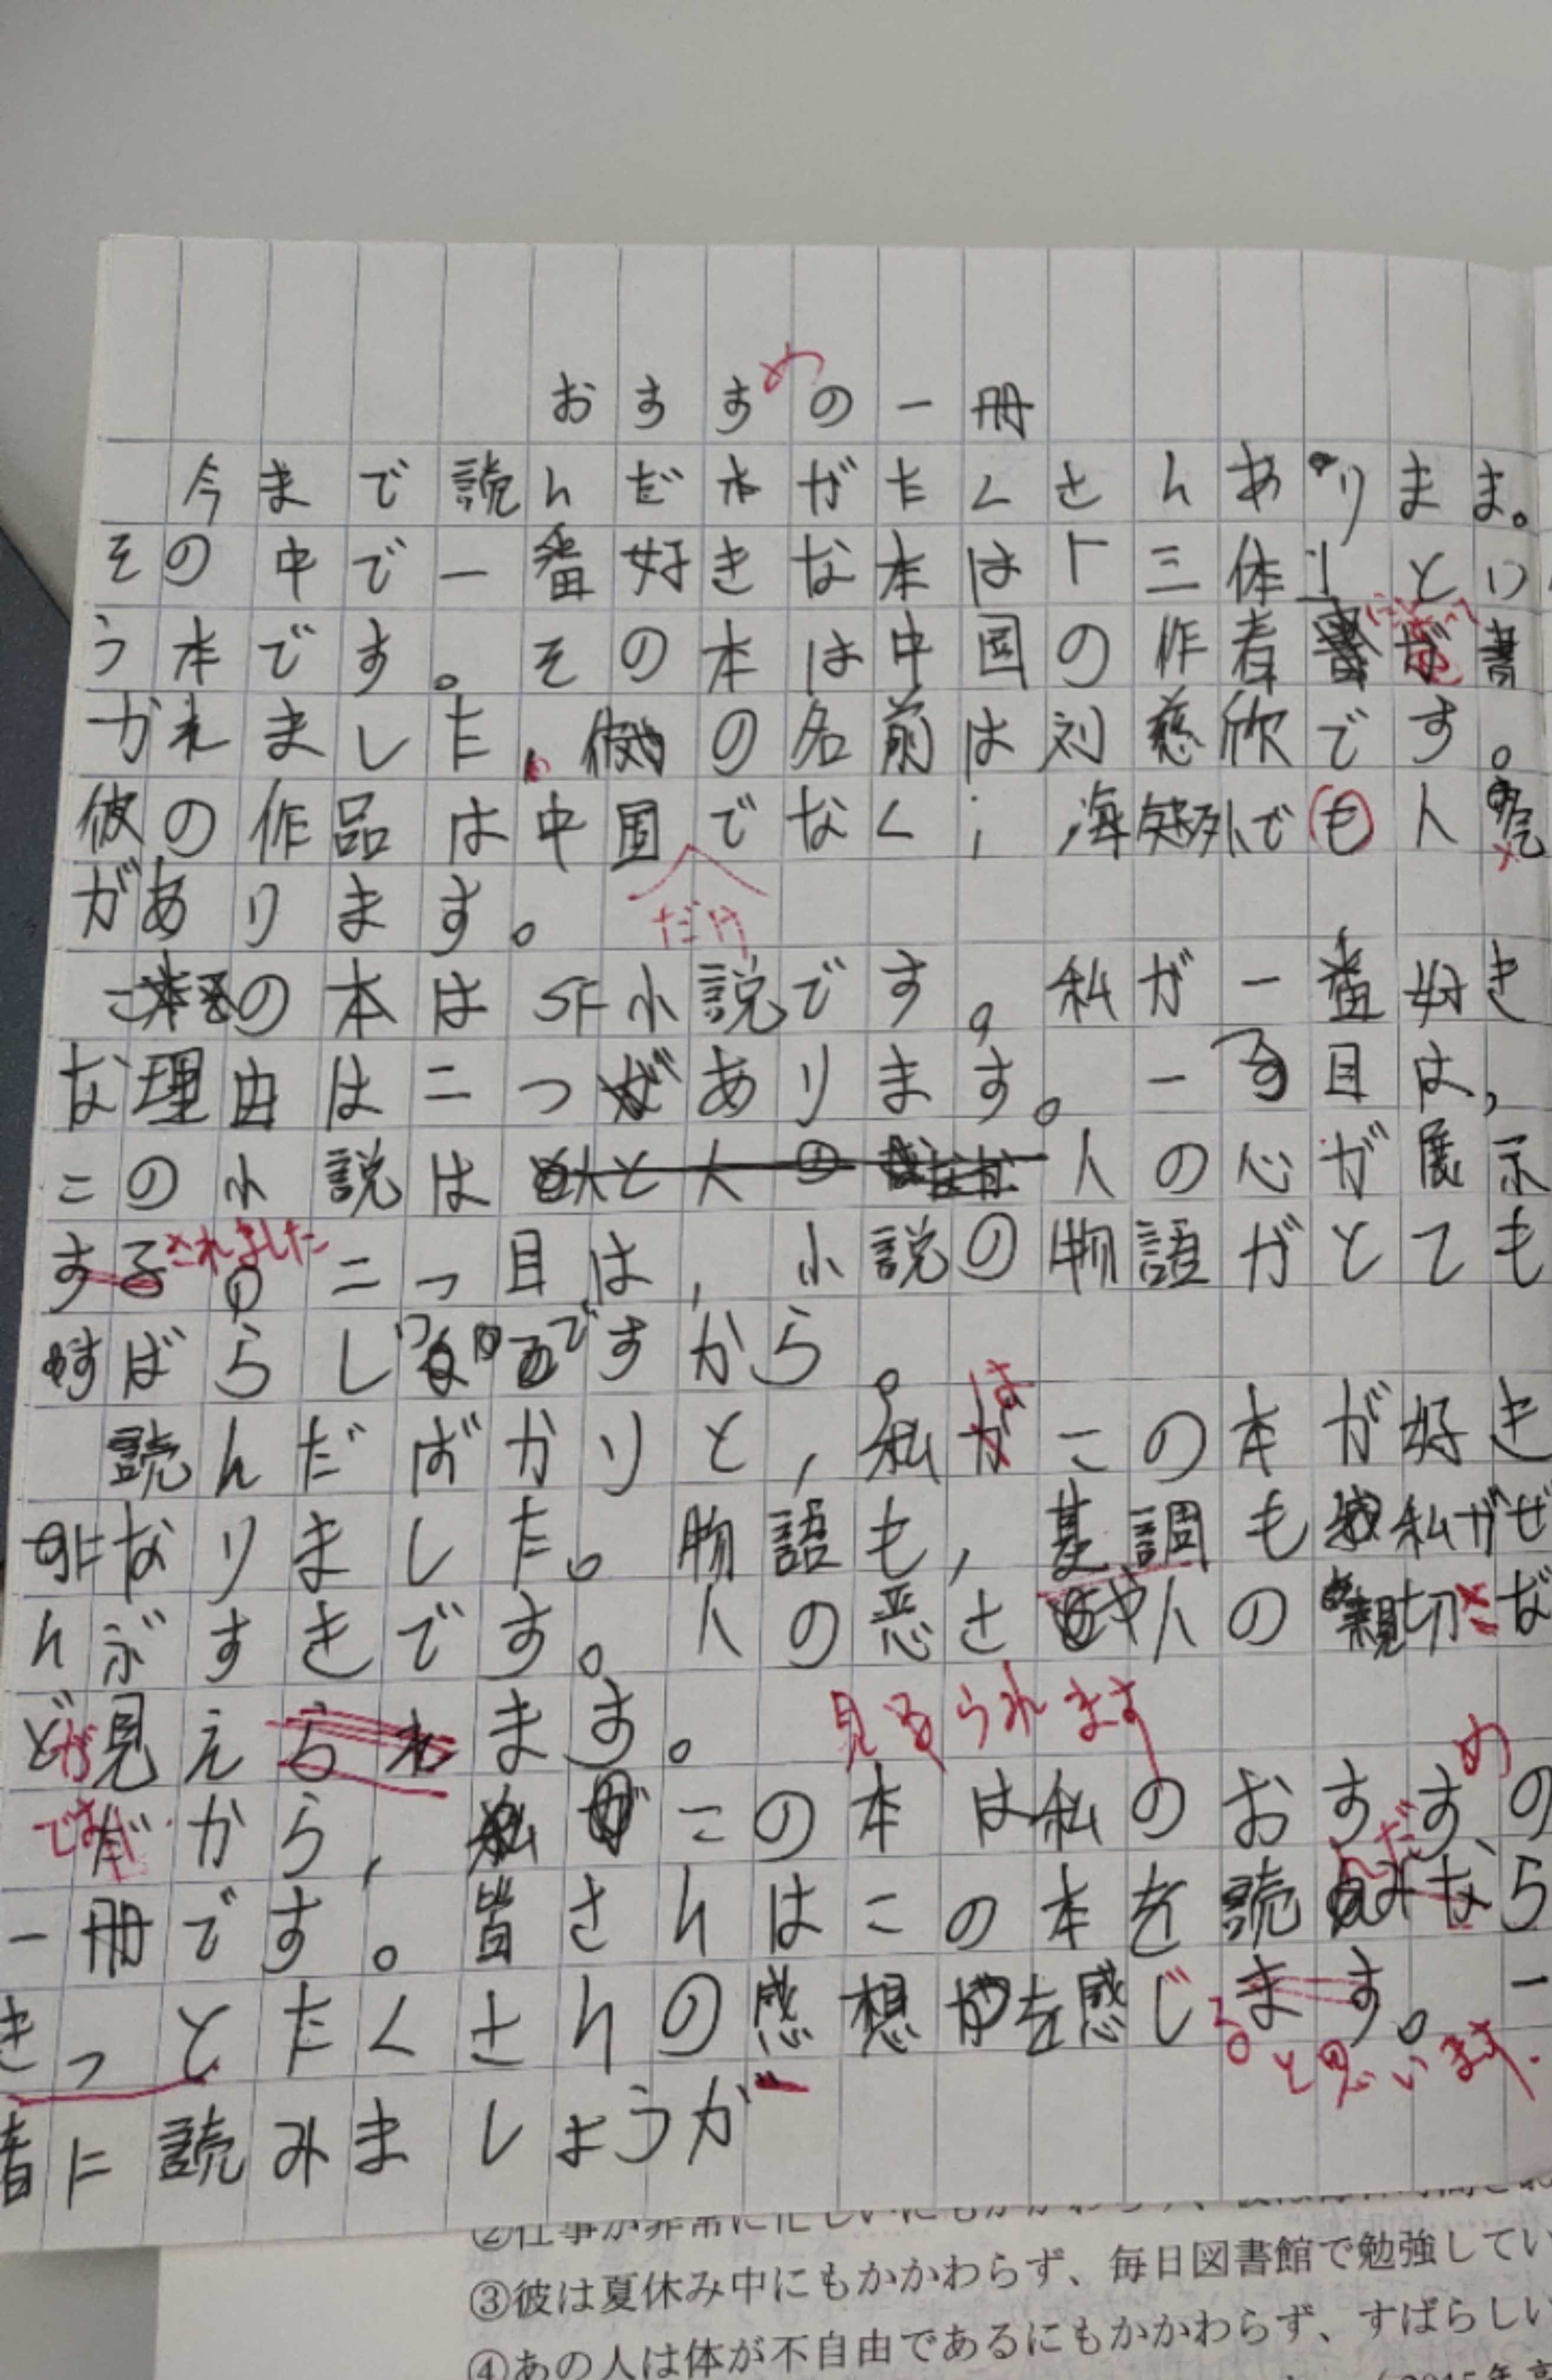 おすすめの一冊
今まで読んだ本がたくさんありまま。
その中で一番好きな本は「三体」とい
う本です。その本は中国の作者によって書
かれました。彼の名前は刘慈欣です。
彼の作品は中国でなく、海外でも人気
だけ
があります。
この本はSF小説です。私が一番好き
な理由は二つあります。一つ目は、
この小説は人の心が展示
するされました。二つ目は、小説の物語がとても
すばらしいですから。
読んだばかりと、私がはこの本が好き
になりました。物語も、基調も私がぜ
んぶすきです。人の悪さや人の親切さな
どが見えられます。見られます
ですだから、この本は私のおすすめの
一冊です。皆さんはこの本を読みんだなら
きっとたくさんの感想を感じます。一
ると思います.
者に読みましょうが
②仕事が非常に忙しいにもかかわらず、
③彼は夏休み中にもかかわらず、毎日図書館で勉強してい
④あの人は体が不自由であるにもかかわらず、すばらしい